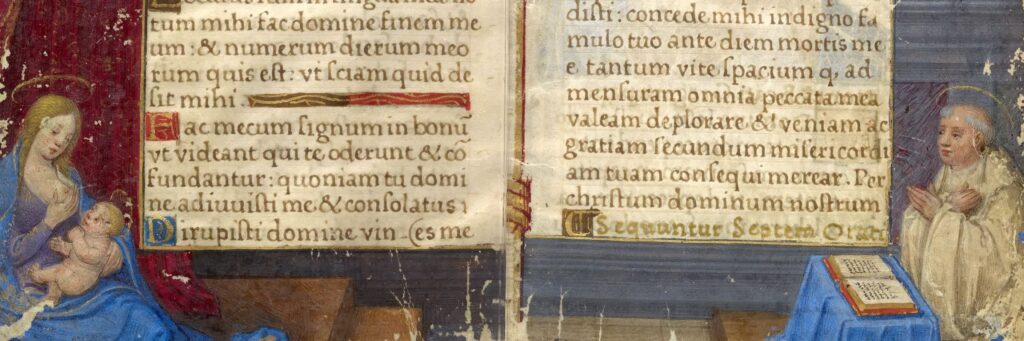 Locutus sum in lingua mea no
tum mihi fac domine finem me
um: & numerum dierum meo
rum quis est: vt sciam quid de
sit mihi
Fac mecum signum in bonũ
vt videant qui te oderunt & cõ
fundantur: quoniam tu domi
ne adiuuisti me & consolatus
Dirupisti domine vin (es me
disti: concede mihi indigno fa
mulo tuo ante diem mortis me
e, tantum vite spacium q, ad
mensuram omnia peccata mea
valeam deplorare & veniam ac
gratiam secundum misericordi
am tuam consequi merear. Per
christum dominum nostrum
Sequuntur Septem Orati